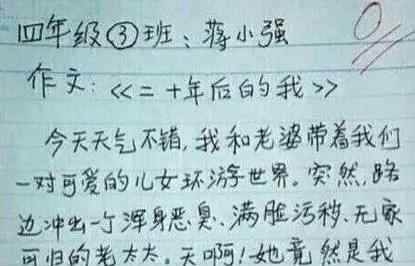 四年级③班：蒋小强
作文：<<二十年后的我>>
今天天气不错，我和老婆带着我们
一对可爱的儿女环游世界。突然，路
边冲出一个浑身恶臭、满脸污秽、无家
可归的老太太。天啊！她竟然是我
0